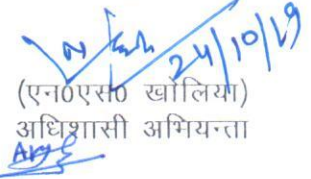 24/10/19
(एन0एस0 खोलिया)
अधिशासी अभियन्ता